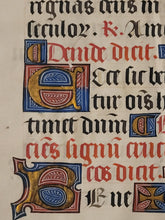 regnas deus in
seculor. R. Ame
Deinde dicit.
Ecce sic be
tur oīs h
timet dnm̄
ciēs signū cruc
cos dicit.
Bene